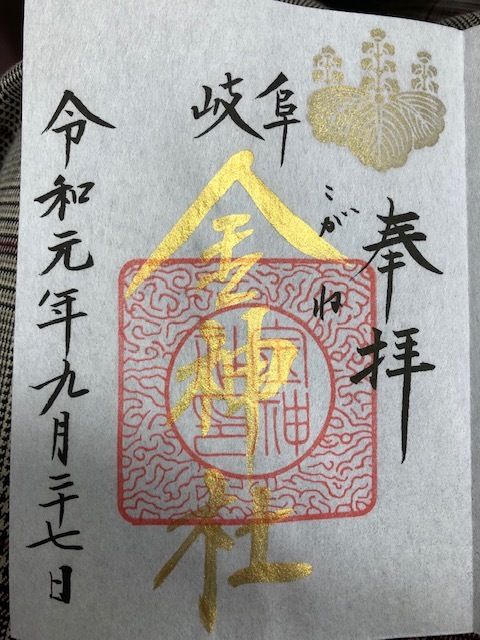 奉拝
岐阜
こがね
金神社
令和元年九月二十七日